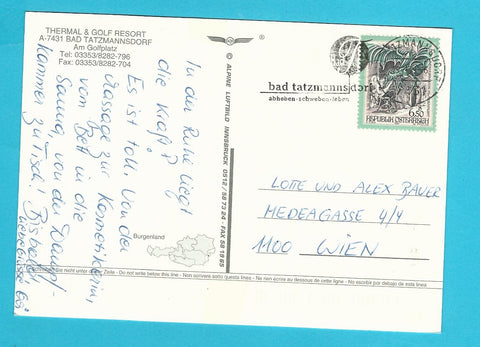 THERMAL & GOLF RESORT
A-7431 BAD TATZMANNSDORF
Am Golfplatz
Tel: 03353/8282-796
Fax: 03353/8282-704
In der Ruhe liegt
die Kraft?
Es ist toll. Von der
Massage zur Kosmetikerin,
vom Bett in die
Sauna, von der Dampf-
kammer zu Tisch! Bis bald!
Burgenland
© ALPINE LUFTBILD INNSBRUCK 0512/587324 · FAX 581865
bad tatzmannsdorf
abheben-schweben-leben
TATZMANNSDORF
6.50
REPUBLIK ÖSTERREICH
LOTTE UND ALEX BAUER
MEDEAGASSE 4/4
1100 WIEN
nicht unter dieser Zeile · Do not write below this line · Non scrivere sotto questa linea · Ne rien écrire au dessous de cette ligne · No escribir por debajo